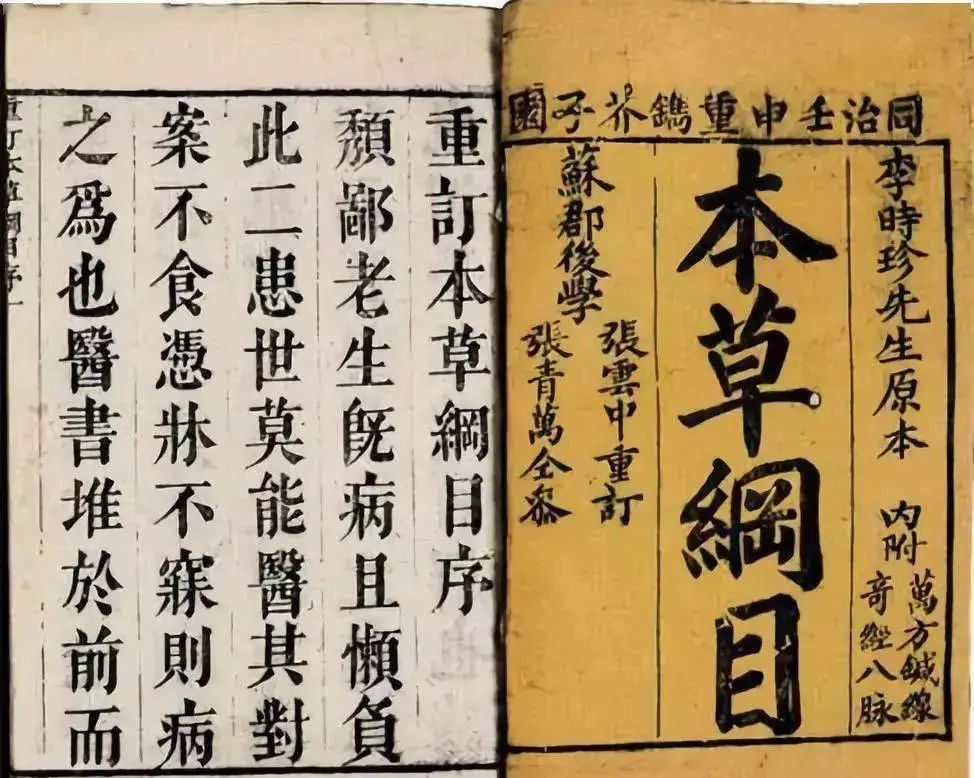 同治壬申重鐫芥子園
李時珍先生原本
内附
萬方鍼線
竒經八脉
本草綱目
蘇郡後學
張雲中重訂
張青萬仝叅
重訂本草綱目序
頽鄙老生旣病且懶負
此二患世莫能醫其對
案不食憑牀不寐則病
之爲也醫書堆於前而
重訂本草綱目序一